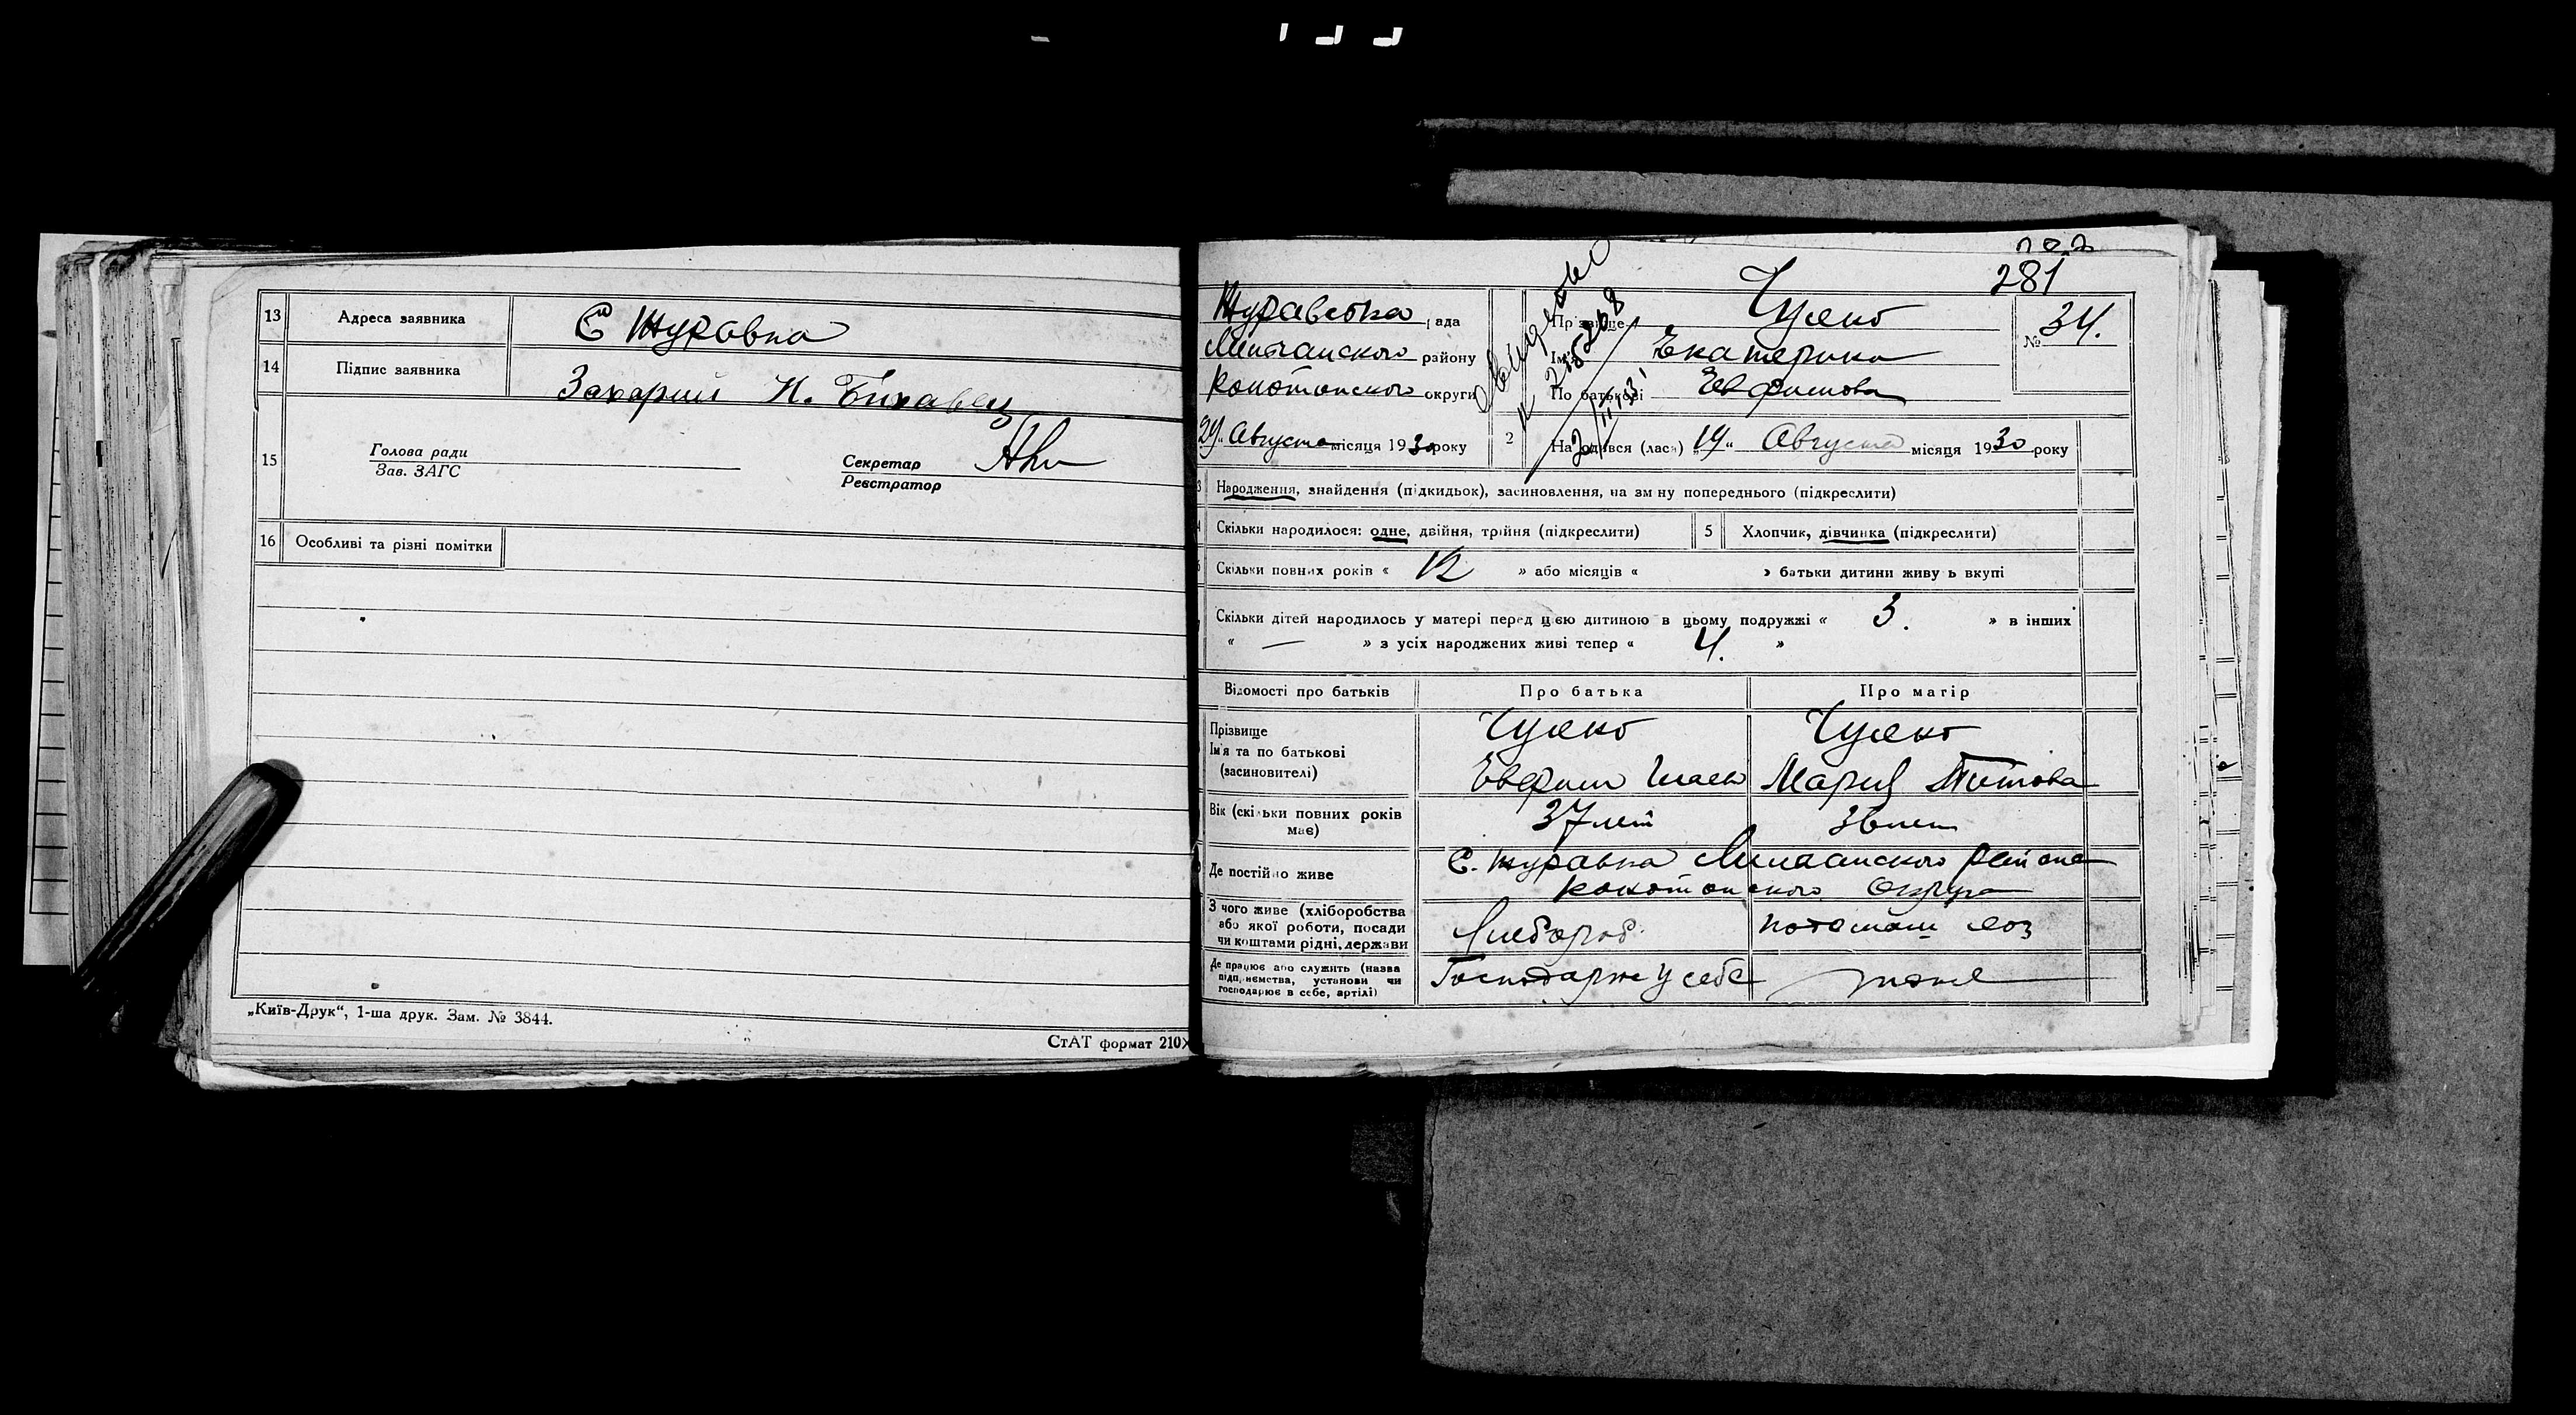 13 Адреса заявника С Журавка
14 Підпис заявника Захарий Н.
15 Голова ради
Зав. ЗАГС
Секретар
Реєстратор
16 Особливі та різні помітки
„Київ-Друк“, 1-ша друк. Зам. № 3844.
СтАТ формат 210×
281
Журавська рада
району
Конотопского округи
29 „Августа місяця 1930 року
Прізвище
Ім'я Екатерина
По батькові Евфимова
№ 34.
2 Народився (лась) „19“ Августа місяця 1930 року
3 Народження, знайдення (підкидьок), засиновлення, на зміну попереднього (підкреслити)
4 Скільки народилося: одне, двійня, трійня (підкреслити) 5 Хлопчик, дівчинка (підкреслити)
Скільки повних років « 12 » або місяців « » батьки дитини живуть вкупі
Скільки дітей народилось у матері перед цією дитиною в цьому подружжі « 3. » в інших
« — » з усіх народжених живі тепер « 4. »
Відомості про батьків Про батька Про матір
Прізвище
Ім'я та по батькові
(засиновителі)
Евфим Мария Титова
Вік (скільки повних років
має)
37 лет 36 лет
Де постійно живе С. Журавка района
Конотопского Округа
З чого живе (хліборобства
або якої роботи, посади
чи коштами рідні, держави
Хлебороб
Де працює або служить (назва
підприємства, установи чи
господарює в себе, артілі)
Господарює у себе тоже